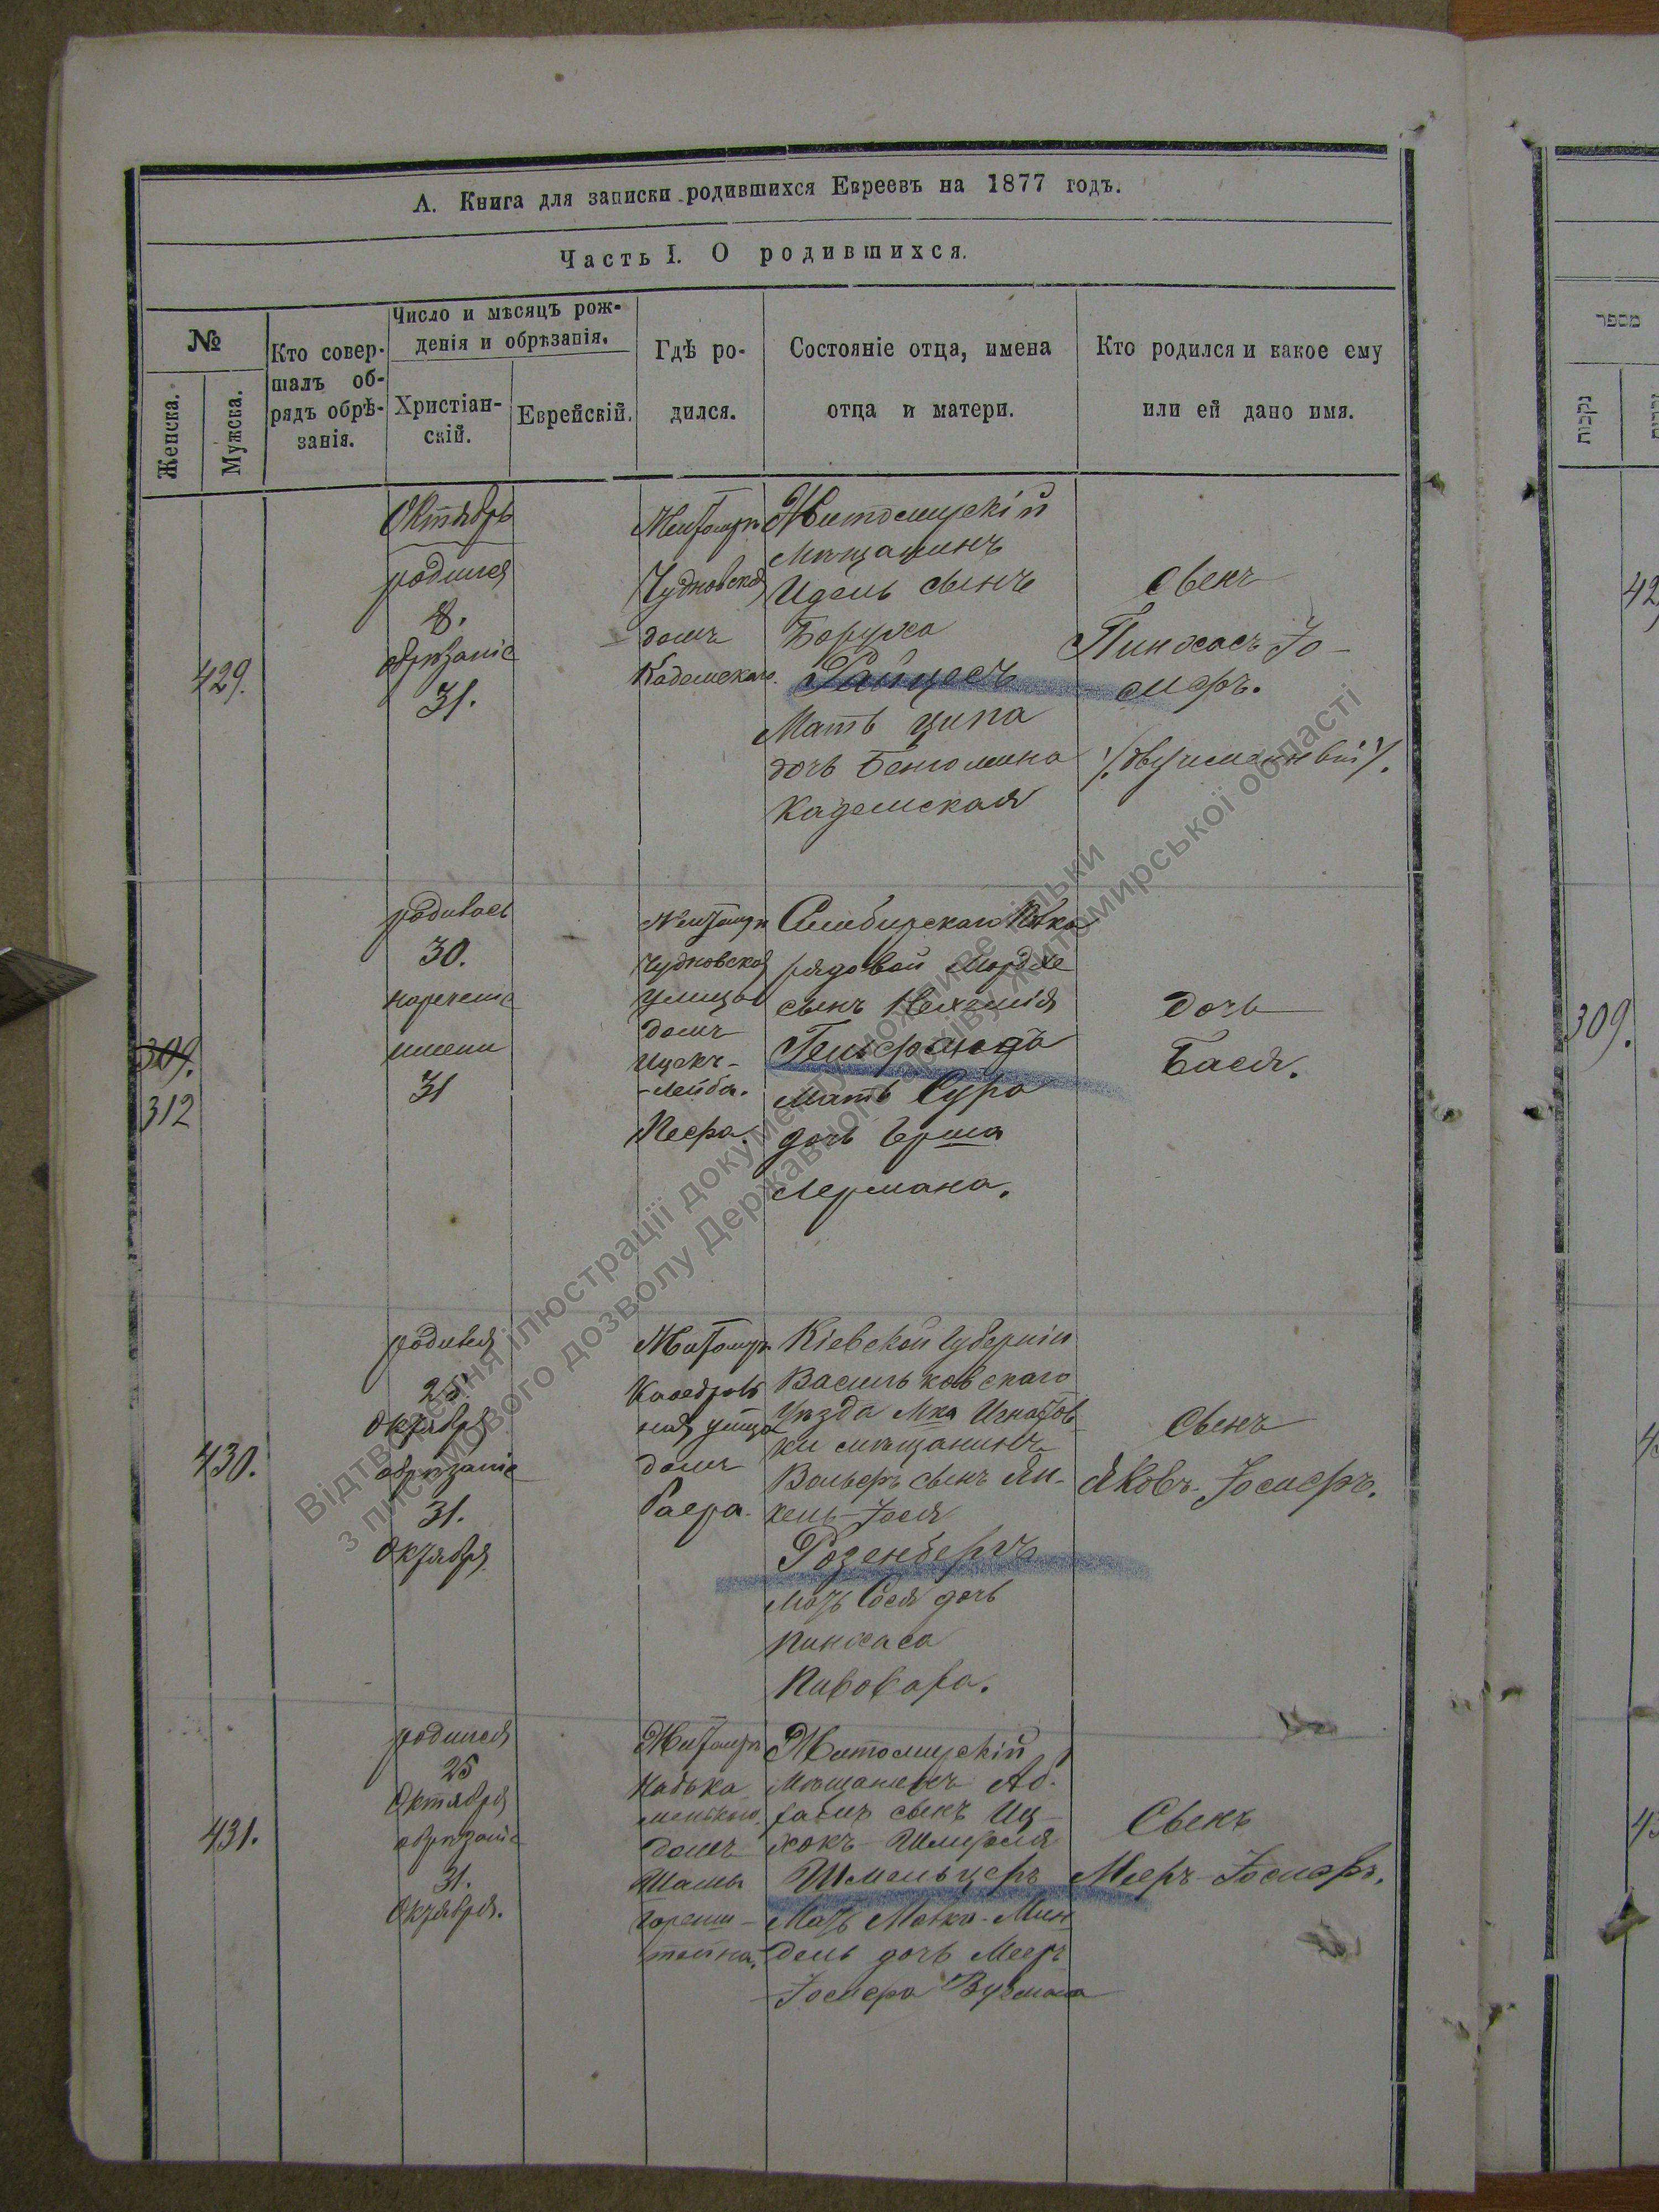 А. Книга для записки родившихся Евреевъ на 1877 годъ.
Часть I. О родившихся.
№
Женска.
Мужска.
Кто совер-
шалъ об-
рядъ обрѣ-
занія.
Число и мѣсяцъ рож-
денія и обрѣзанія.
Христіан-
скій.
Еврейскій.
Гдѣ ро-
дился.
Состояніе отца, имена
отца и матери.
Кто родился и какое ему
или ей дано имя.
429.
Октябрь
родился
8.
обрѣзаніе
31.
Житомиръ
Чудновская
домъ
Кадемскаго.
Житомирскій
мѣщанинъ
Идель сынъ
Боруха
Райцесъ
Мать Ципа
дочь Беніомина
Кадемская
сынъ
Пинхасъ Іо-
сифъ.
309.
312
родилась
30.
нареченіе
имени
31
Житомиръ
Чудновская
улица
домъ
Ицекъ-
-Лейба.
Симбирскаго Полка
рядовой Мордхе
сынъ Нехемія
мать Сура
дочь Герша
Лермана.
дочь
Бася.
430.
родился
25
Октября
обрѣзаніе
31.
Октября
Житомиръ
Каѳедраль
ная улица
домъ
Баера.
Кіевской губерніи
Васильковскаго
уѣзда Мка Игнатов-
ки мѣщанинъ
Вольфъ сынъ Ян-
кель-Іося
Розенбергъ
Мать Сося дочь
Пинхаса
Пивовара.
сынъ
Яковъ-Іосифъ.
431.
родился
25
Октября
обрѣзаніе
31.
Октября.
Житомиръ
домъ
Шамы
Горен
штейна.
Житомирскій
мѣщанинъ Аб-
рамъ сынъ Иц-
хокъ-Шмуеля
Шмельцеръ
Мать Малка-Мин
дель дочь Меер
Іосифа
Сынъ
Мееръ-Іосифъ.
מספר
נקבות
309.
Відтворення ілюстрації документу можливе тільки
з письмового дозволу Державного архіву Житомирської області